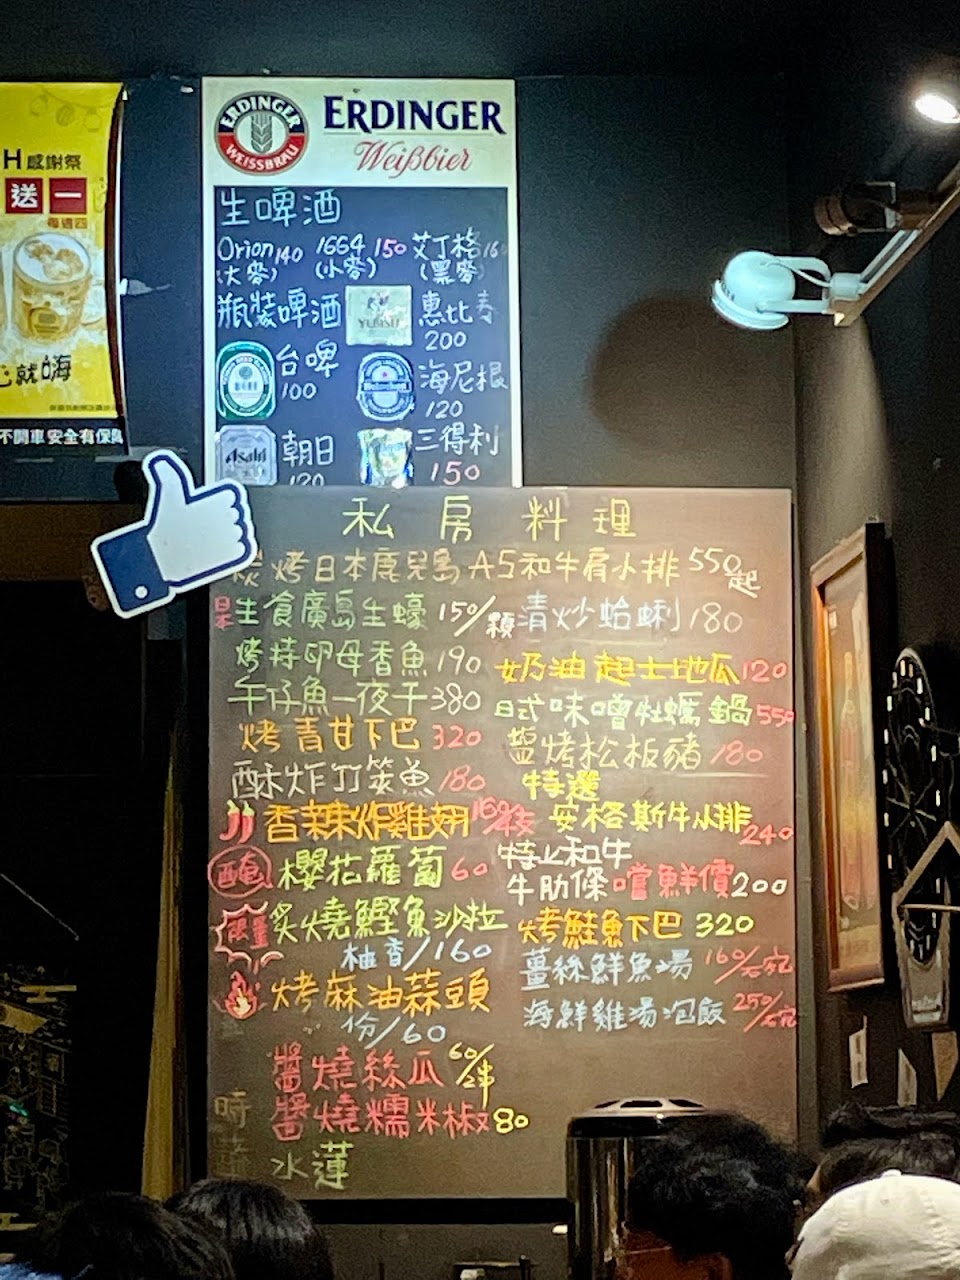 H 感謝祭
送一
每週四
就嗨
不開車 安全有保障
ERDINGER
WEISSBRÄU
ERDINGER
Weißbier
生啤酒
Orion 140 1664 150 艾丁格 160
(大麥) (小麥) (黑麥)
瓶裝啤酒 YEBISU 惠比寿
200
台啤
100
Heineken 海尼根
120
Asahi 朝日
120
三得利
150
私房料理
炭烤日本鹿兒島A5和牛肩小排 550起
日本生食廣島生蠔 150/顆
清炒蛤蜊 180
烤持卵母香魚 190
奶油起士地瓜 120
午仔魚一夜干 380
日式味噌牡蠣鍋 550
烤青甘下巴 320
鹽烤松板豬 180
酥炸竹筴魚 180
特選
安格斯牛小排 240
香辣炸雞翅 160/支
特上和牛
牛肋條 嚐鮮價 200
醃 櫻花蘿蔔 60
限量 炙燒鰹魚沙拉
柚香/160
烤鮭魚下巴 320
薑絲鮮魚湯 160/碗
烤麻油蒜頭
份/60
海鮮雞湯泡飯 250/碗
醬燒絲瓜 60/串
醬燒糯米椒 80
時蔬 水蓮